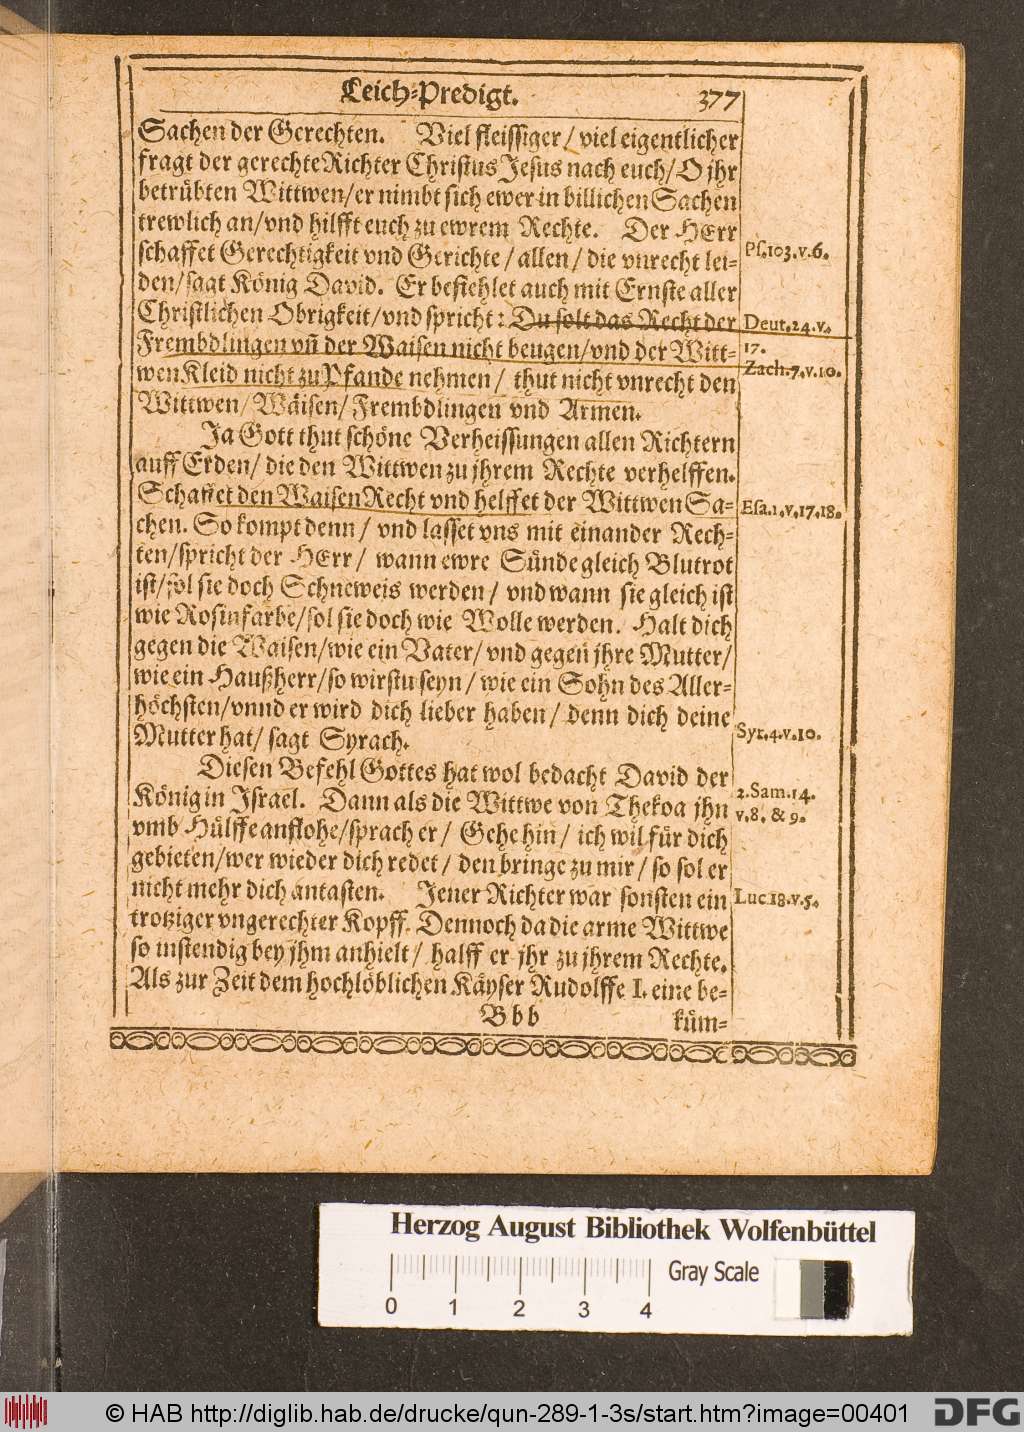 Leich-Predigt. 377
Sachen der Gerechten. Viel fleissiger / viel eigentlicher
fragt der gerechte Richter Christus Jesus nach euch / O jhr
betrübten Wittwen / er nimbt sich ewer in billichen Sachen
trewlich an / vnd hilfft euch zu ewrem Rechte. Der HErr
schaffet Gerechtigkeit vnd Gerichte / allen / die vnrecht lei-
Ps. 103. v. 6.
den / sagt König David. Er befiehlet auch mit Ernste aller
Christlichen Obrigkeit / vnd spricht: Du solt das Recht der
Deut. 24. v.
Frembdlingen vn̄ der Waisen nicht beugen / vnd der Witt-
17.
wen Kleid nicht zu Pfande nehmen / thut nicht vnrecht den
Zach. 7. v. 10.
Wittwen / Wäisen / Frembdlingen vnd Armen.
Ja Gott thut schöne Verheissungen allen Richtern
auff Erden / die den Wittwen zu jhrem Rechte verhelffen.
Schaffet den Waisen Recht vnd helffet der Wittwen Sa-
Esa. 1. v. 17. 18.
chen. So kompt denn / vnd lasset vns mit einander Rech-
ten / spricht der HErr / wann ewre Sünde gleich Blutrot
ist / sol sie doch Schneweis werden / vnd wann sie gleich ist
wie Rosinfarbe / sol sie doch wie Wolle werden. Halt dich
gegen die Waisen / wie ein Vater / vnd gegen jhre Mutter /
wie ein Haußherr / so wirstu seyn / wie ein Sohn des Aller-
höchsten / vnnd er wird dich lieber haben / denn dich deine
Mutter hat / sagt Syrach.
Syr. 4. v. 10.
Diesen Befehl Gottes hat wol bedacht David der
König in Israel. Dann als die Wittwe von Thekoa jhn
2. Sam. 14.
v. 8. & 9.
vmb Hülffe anflohe / sprach er / Gehe hin / ich wil für dich
gebieten / wer wieder dich redet / den bringe zu mir / so sol er
nicht mehr dich antasten. Jener Richter war sonsten ein
Luc 18. v. 5.
trotziger vngerechter Kopff. Dennoch da die arme Wittwe
so instendig bey jhm anhielt / halff er jhr zu jhrem Rechte.
Als zur Zeit dem hochlöblichen Käyser Rudolffe I. eine be-
Bbb küm-
Herzog August Bibliothek Wolfenbüttel
0 1 2 3 4
Gray Scale
© HAB http://diglib.hab.de/drucke/qun-289-1-3s/start.htm?image=00401
DFG